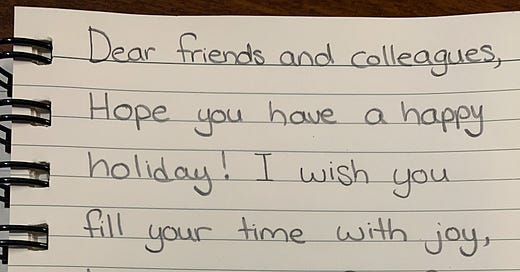 Dear friends and colleagues,
Hope you have a happy
holiday! I wish you
fill your time with joy,